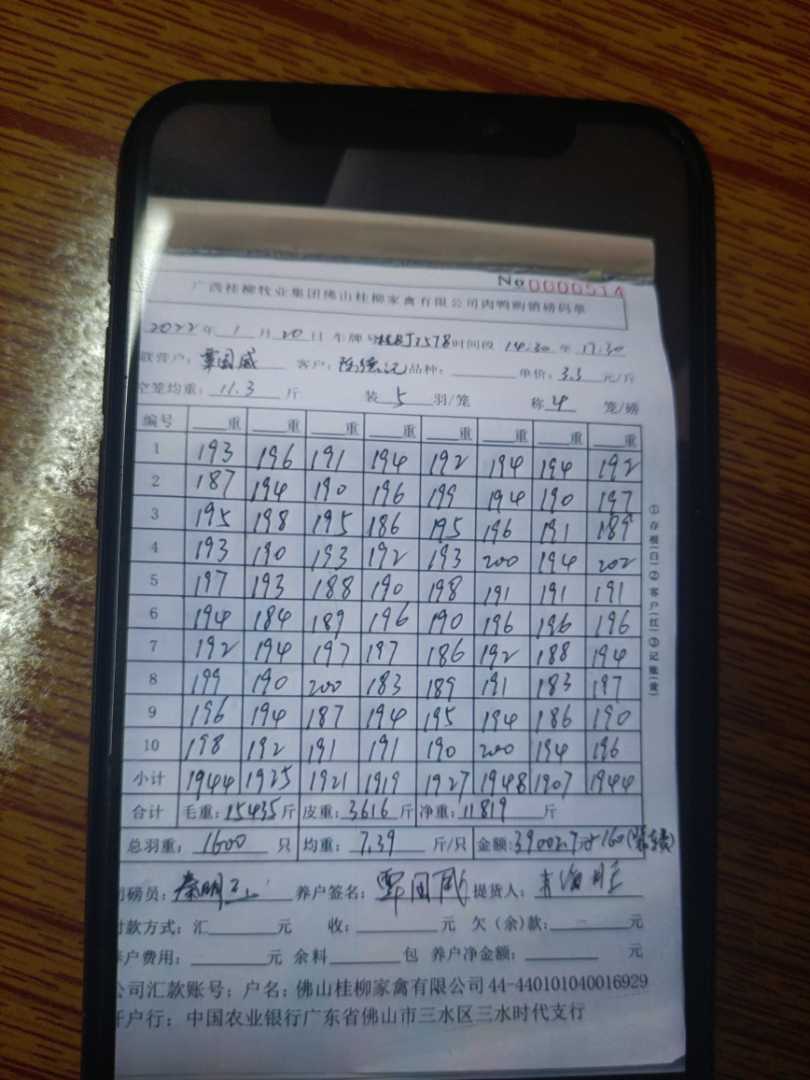 No 0000514
广西桂柳牧业集团佛山桂柳家禽有限公司肉鸭购销磅码单
2022年 1 月 20 日 车牌号桂BJ7578时间段 14:30 至 17:30
联营户：覃国威 客户：陈德记 品种： 单价：3.3 元/斤
空笼均重：11.3 斤 装 5 羽/笼 称 4 笼/磅
编号 重 重 重 重 重 重 重 重
1 193 196 191 194 192 194 194 192
2 187 194 190 196 199 194 190 197
3 195 198 195 186 195 196 191 189
4 193 190 193 192 193 200 194 202
5 197 193 188 190 198 191 191 191
6 194 184 189 196 190 196 196 196
7 192 194 197 197 186 192 188 194
8 199 190 200 183 189 191 183 197
9 196 194 187 194 195 194 186 190
10 198 192 191 191 190 200 194 196
小计 1944 1925 1921 1919 1927 1948 1907 1944
合计 毛重：15435 斤 皮重：3616 斤 净重：11819 斤
总羽重：1600 只 均重：7.39 斤/只 金额：39002.7元+160
司磅员：秦明 养户签名：覃国威 提货人：
付款方式：汇 元 收： 元 欠（余）款： 元
养户费用： 元 余料 包 养户净金额： 元
公司汇款账号；户名：佛山桂柳家禽有限公司44-440101040016929
开户行：中国农业银行广东省佛山市三水区三水时代支行
①存根(白)②客户(红)③记账(黄)